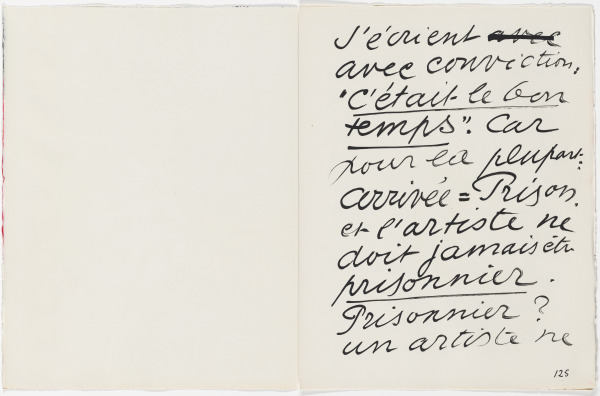 s'écrient avec
avec conviction,
"C'était le bon
temps". Car
pour la plupart:
arrivée = Prison.
et l'artiste ne
doit jamais être
prisonnier.
Prisonnier ?
un artiste ne
125